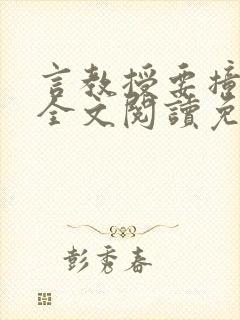 言教授要撞
全文閱讀免
彭秀春